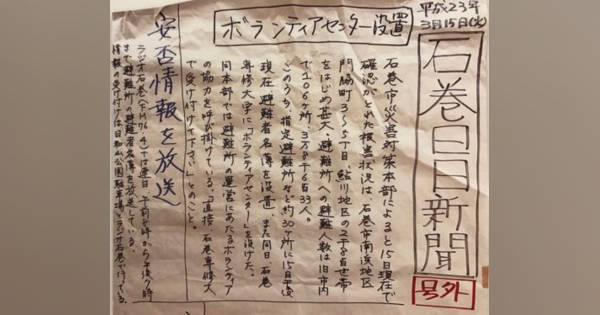 平成23年
3月15日(火)
石巻日日新聞
号外
ボランティアセンター設置
石巻市災害対策本部によると15日現在で
確認がとれた被害状況は、石巻市南浜地区
門脇町3〜5丁目、鮎川地区の2千8百世帯
をはじめ甚大。避難所への避難人数は旧市内
で106ヶ所、3万8千6百33人。
このうち、指定避難所など約30ヶ所に15日午後
現在避難者名簿を設置、また同日、石巻
専修大学に「ボランティアセンター」を設けた。
同本部では避難所の運営にあたるボランティア
の協力を呼び掛けている。「直接、石巻専修大
で受け付けて下さい」とのこと。
安否情報を放送
ラジオ石巻(FM76.4)では連日、午前7時から午後7時
まで避難所の避難者名簿を放送している。
情報の受け付けは日和山公園駐車場とラジオ石巻で行っている。